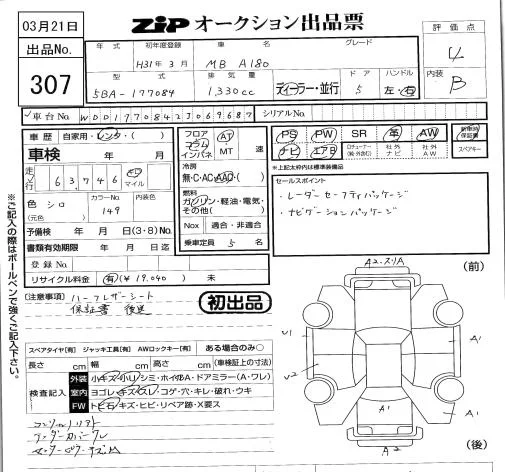 03月21日
ZIP オークション出品票
出品No.
307
評価点
4
内装
B
年式 初年度登録 車名 グレード
H31年3月 MB A180
型式 排気量 ドア ハンドル
5BA-177084 1,330cc ディーラー・並行 5 左・右
車台No WDD1770842J069687 シリアルNo.
車歴 自家用・レンタ・( )
車検 年 月
走行 63,746 km マイル
色 シロ カラーNo. 149 内装色
(元色)
予備検 年 月 日(3・8)No.
書類有効期限 年 月 日迄
登録No.
リサイクル料金 有(¥19,040) 未
フロア コラム インパネ AT MT 速
冷房
無・C・AC・AAC・( )
燃料
ガソリン・軽油・電気・その他( )
Nox 適合・非適合
乗車定員 5 名
PS PW SR 革 AW 新車時保証書
ナビ エアB 社外ナビ 社外AW スペアキー
*上記太枠は標準装備品
セールスポイント
・レーダーセーフティパッケージ
・ナビゲーションパッケージ
(注意事項) ハーフレザーシート
保証書 後送
初出品
スペアタイヤ[有] ジャッキ工具[有] AWロックキー[有] ある場合のみ○
長さ cm 幅 cm 高さ cm (車検証上の寸法)
検査記入
外装 小キズ・小凹・シミ・ホイルA・ドアミラー(A・ワレ)
室内 ヨゴレ・キズ・スレ・コゲ・穴・キレ・破れ・ウキ
FW トビ石・キズ・ヒビ・リペア跡・X要ス
アンダーカバーワレ
(前)
A2.スリA
U1
A1
U2
A1
A1
(後)
※ご記入の際はボールペンで強くご記入下さい。